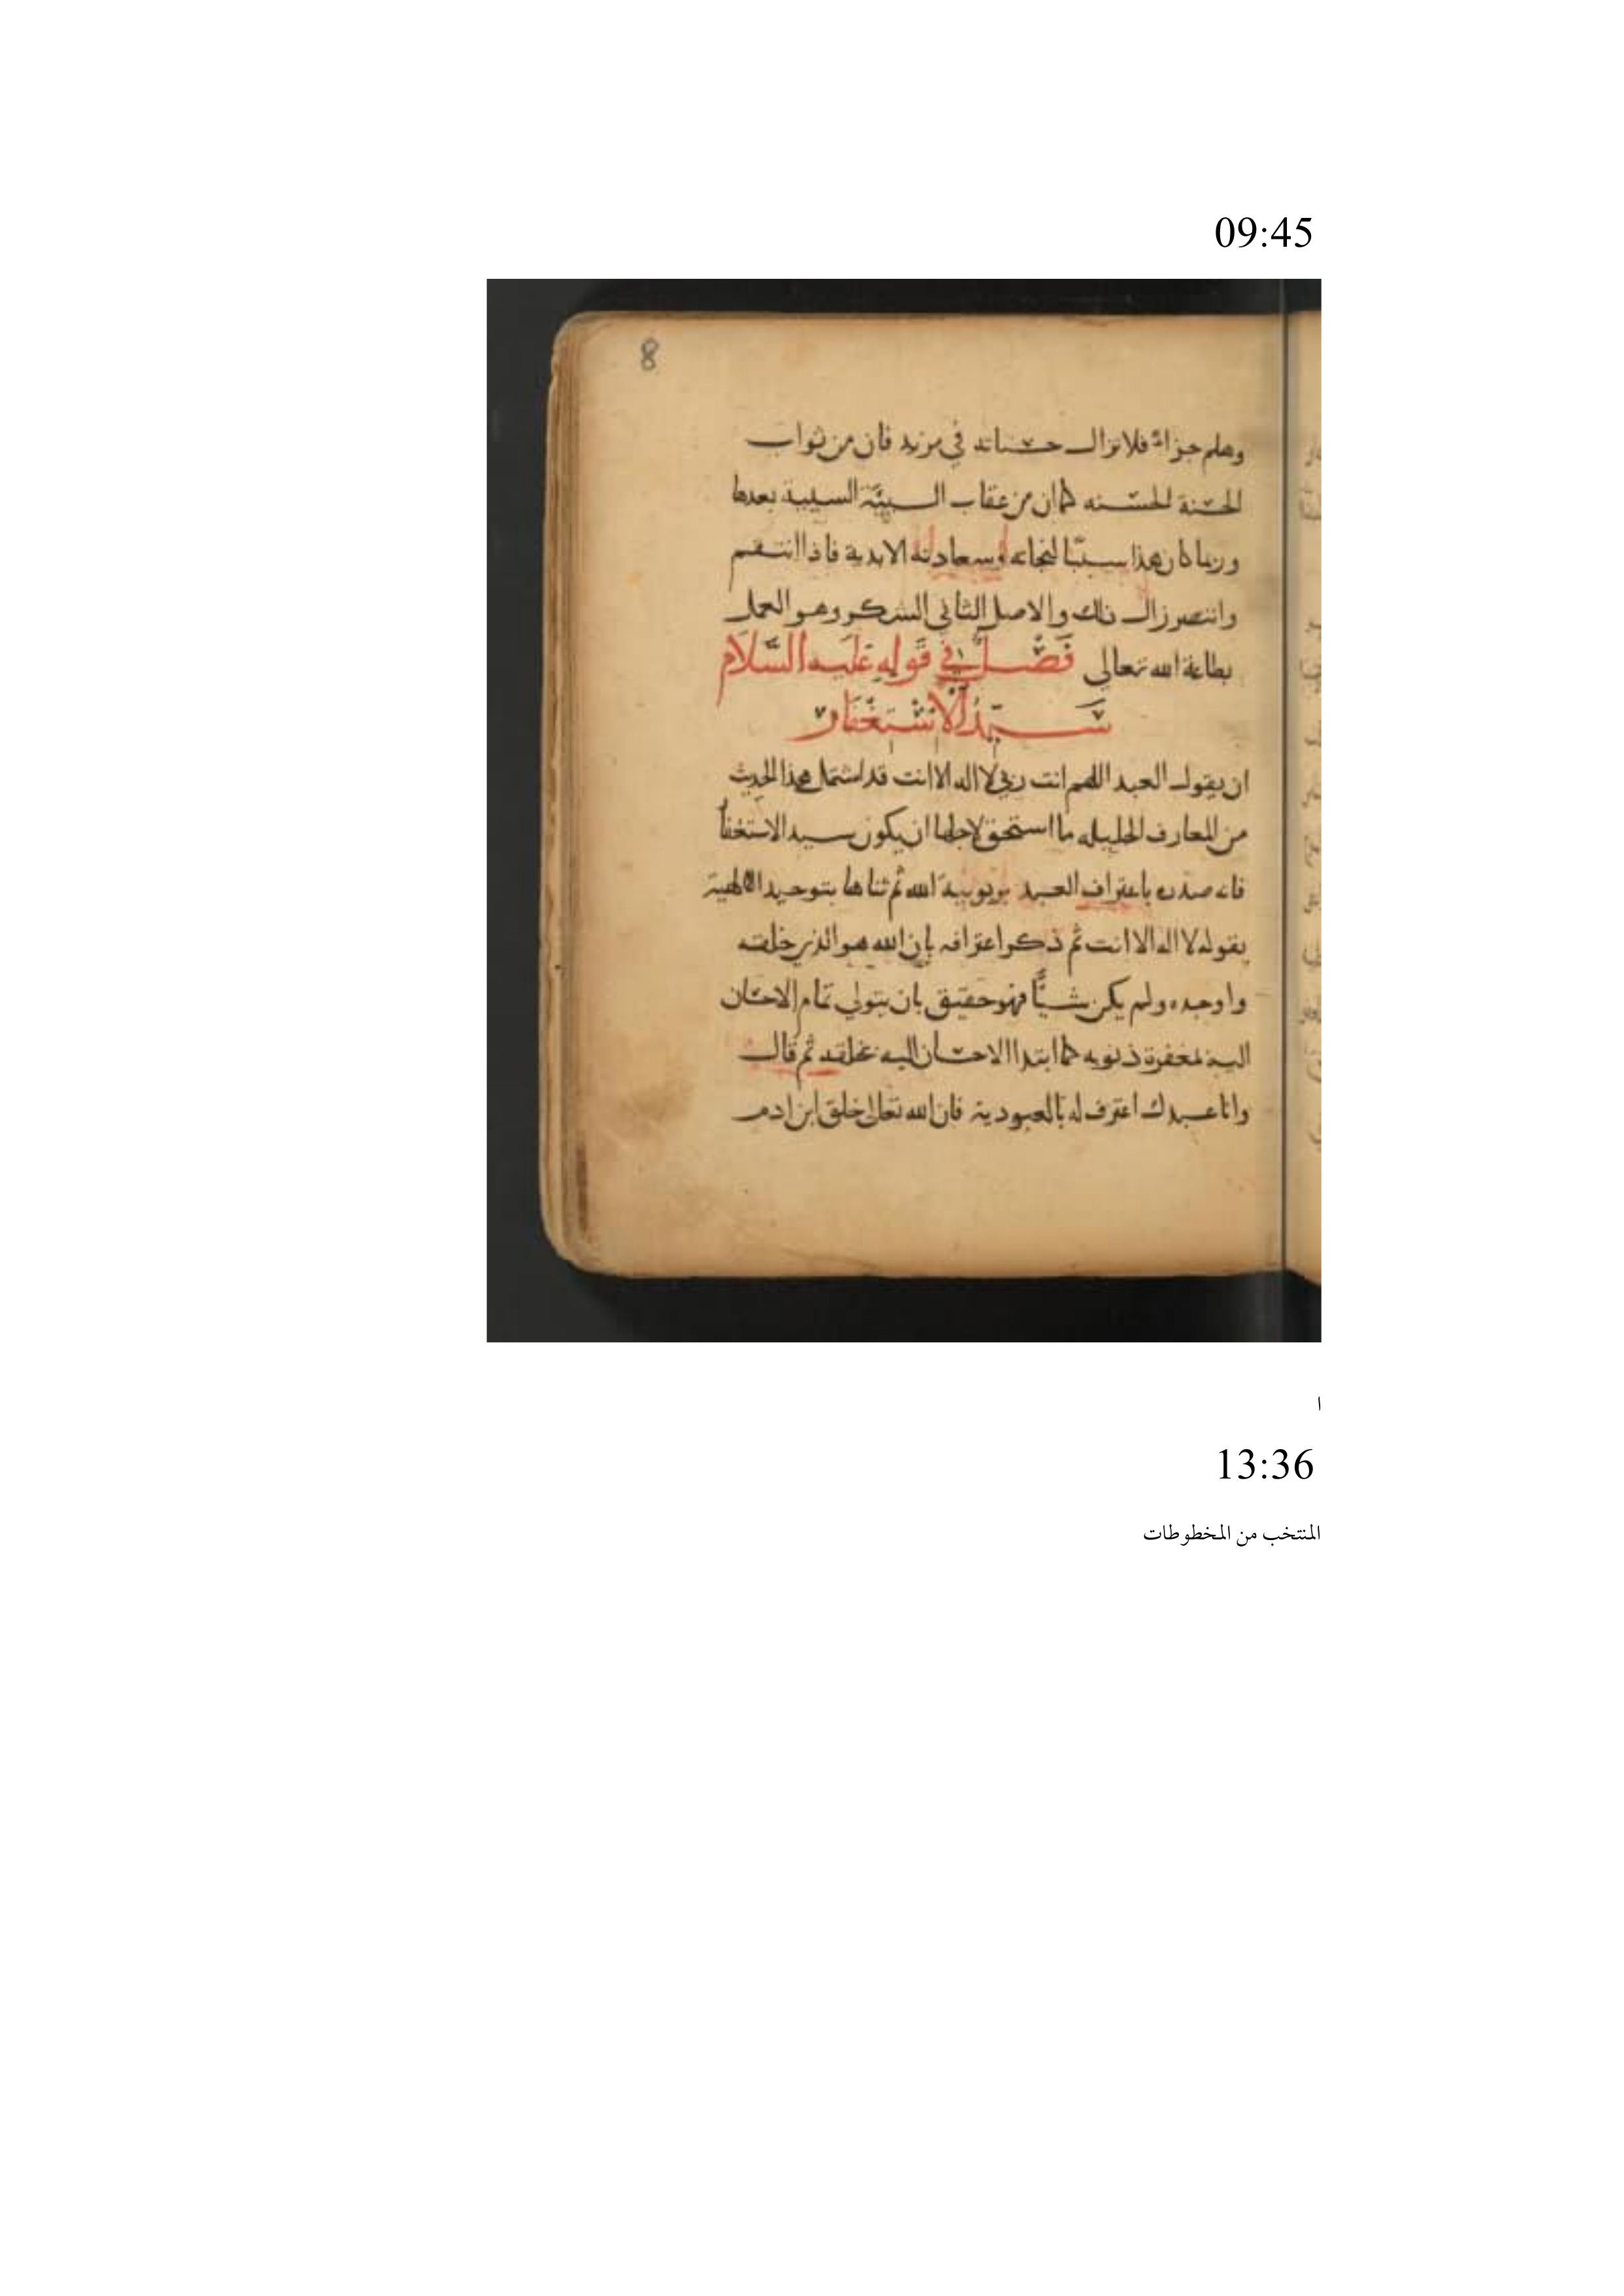 09:45
8
وهلم جرا فلا تزال حسناته في مزيد فان من ثواب
الحسنة الحسنه كما ان من عقاب السيئة السيية بعدها
وربما كان هذا سببًا لنجاته وسعادته الابدية فاذا انتقم
وانتصر زال ذلك والاصل الثاني الشكر وهو العمل
بطاعة الله تعالى فَصْل في قَوله عَليه السَّلَام
سَيّدُ الاسْتِغْفَار
ان يقول العبد اللهم انت ربي لا اله الا انت قد اشتمل هذا الحديث
من المعارف الجليله ما استحق لاجلها ان يكون سيد الاستغفا
فانه صدره باعتراف العبد بربوبية الله ثم ثناها بتوحيد الالهية
بقوله لا اله الا انت ثم ذكر اعترافه بان الله هو الذي خلقه
واوجده ولم يكن شيًّا فهو حقيق بان يتولي تمام الاحسان
اليه بمغفرة ذنوبه كما ابتدا الاحسان اليه بخلقه ثم قال
وانا عبدك اعترف له بالعبودية فان الله تعالى خلق ابن ادم
ا
13:36
المنتخب من المخطوطات